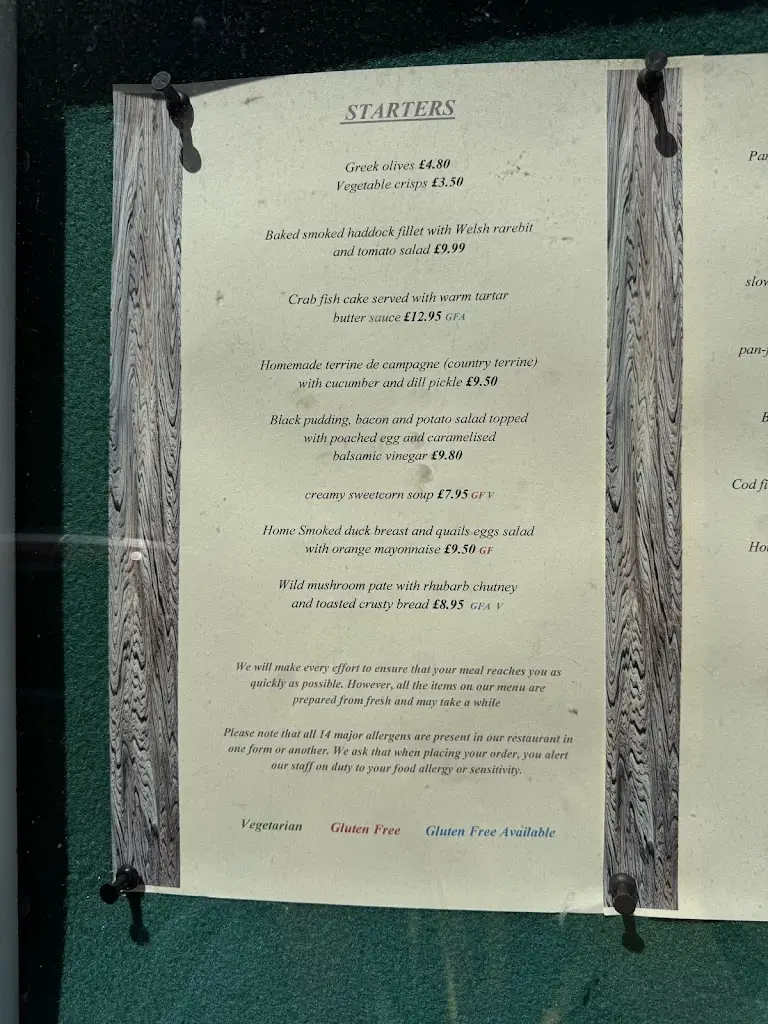 STARTERS
Greek olives £4.80
Vegetable crisps £3.50
Baked smoked haddock fillet with Welsh rarebit
and tomato salad £9.99
Crab fish cake served with warm tartar
butter sauce £12.95 GFA
Homemade terrine de campagne (country terrine)
with cucumber and dill pickle £9.50
Black pudding, bacon and potato salad topped
with poached egg and caramelised
balsamic vinegar £9.80
creamy sweetcorn soup £7.95 GF V
Home Smoked duck breast and quails eggs salad
with orange mayonnaise £9.50 GF
Wild mushroom pate with rhubarb chutney
and toasted crusty bread £8.95 GFA V
We will make every effort to ensure that your meal reaches you as
quickly as possible. However, all the items on our menu are
prepared from fresh and may take a while
Please note that all 14 major allergens are present in our restaurant in
one form or another. We ask that when placing your order, you alert
our staff on duty to your food allergy or sensitivity.
Vegetarian Gluten Free Gluten Free Available
slow
Cod